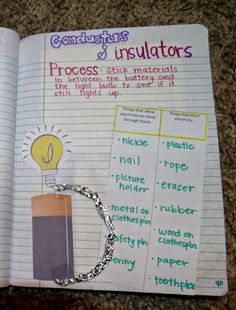 Conductors
& insulators
Process: stick materials
in between the battery and
the light bulb to see if it
still lights up.
Things that allow electricity to move through them.
Things that block electricity.
· nickle
· plastic
· nail
· rope
· picture holder
· eraser
· metal on clothespin
· rubber
safety pin
· wood on clothespin
enny
· paper
· toothpick
40